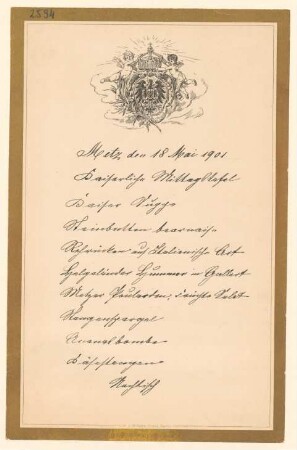 2594
Metz, den 18 Mai 1901
Kaiserliche Mittagstafel
Kaiser Suppe
Steinbutten bearnaise
Rehrücken auf Italienische Art
Helgoländer Hummer in Gallert
Metzer Poularden, Früchte, Salat
Stangenspargel
Ananasbombe
Käsestangen
Nachtisch